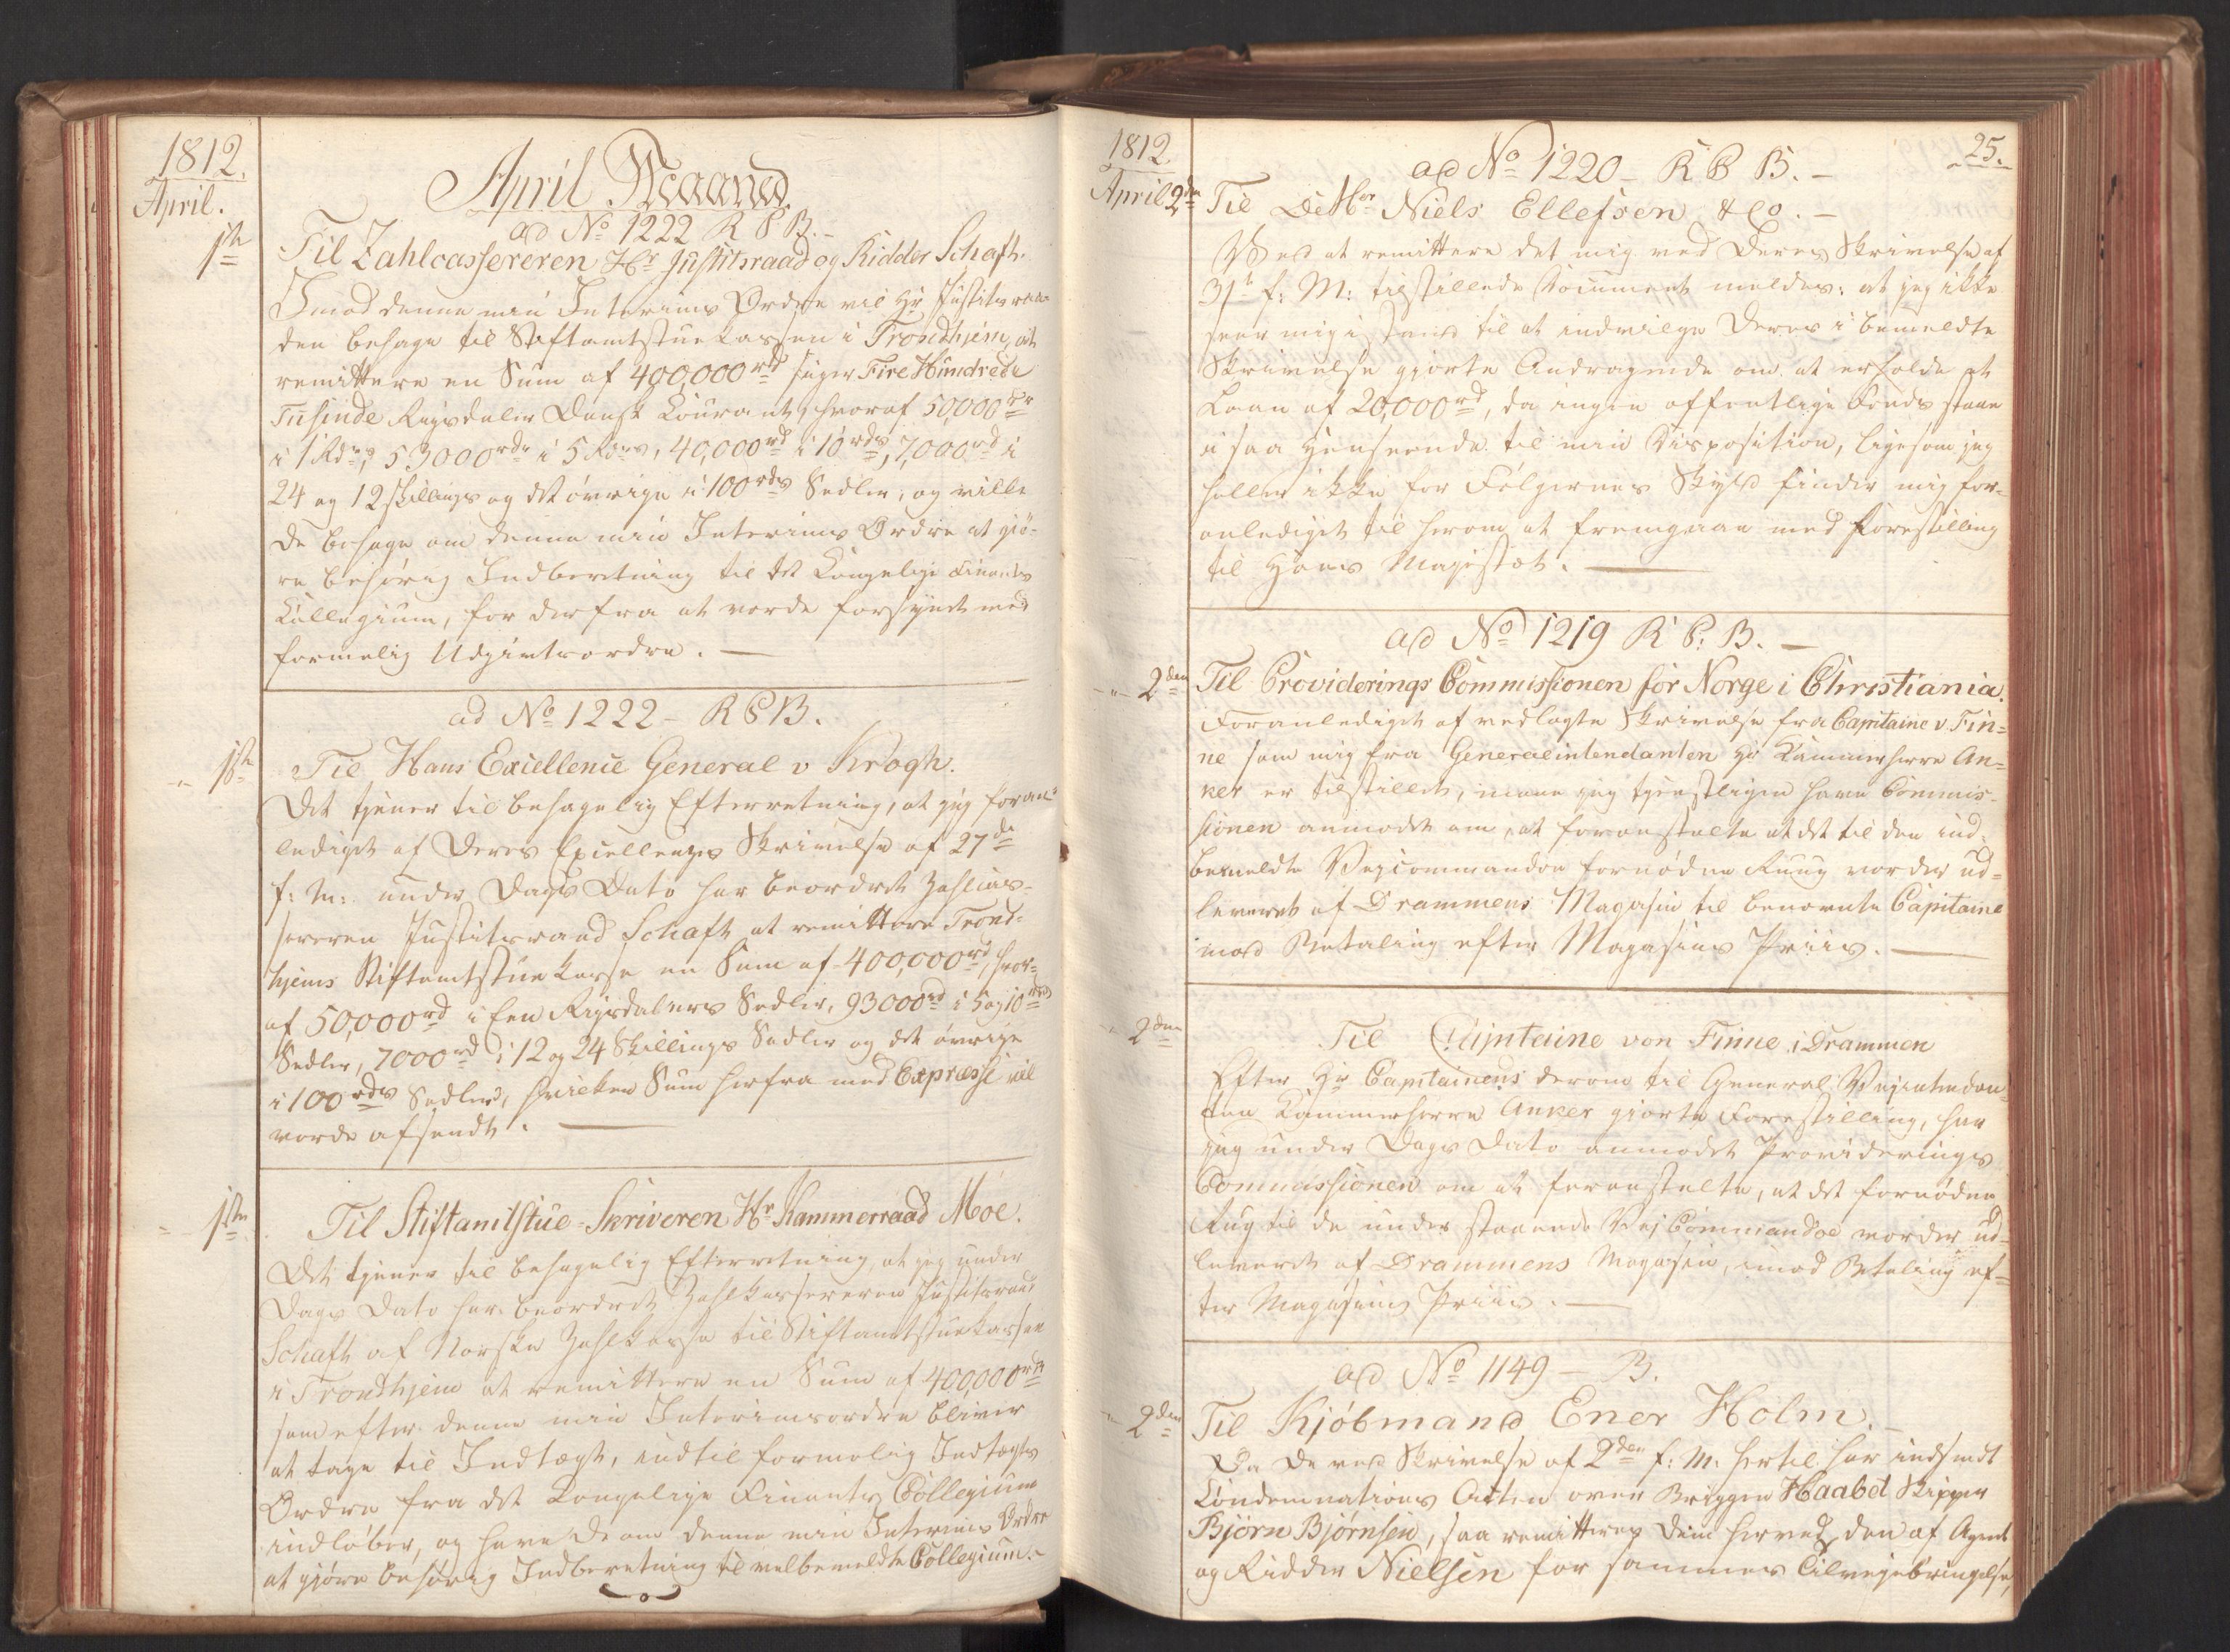 1812.
April.
April Maaned.
ad No 1222 R P B.
1ste
Til Zahlcassereren Hr Justitsraad og Ridder Schaft.
Imod denne min Interims Ordre vil Hr Justitsraa-
den behage til Stiftamtstuekassen i Trondhjem at
remittere en Sum af 400,000 rd siger Fire Hundrede
Tusinde Rigsdaler Dansk Courant, hvoraf 50,000 rdr
i 1 Rdrs, 53000 rdr i 5 Rdrs, 40,000 rd i 10 rds, 7,000 rd i
24 og 12 skillings og det øvrige i 100 rds Sedler, og ville
De behage om denne min Interims Ordre at giö-
re behörig Indberetning til det Kongelige Finants
Collegium, for derfra at vorde forsynet med
formelig Udgivtsordre. —
ad No 1222 - R P B.
- " - 1ste
Til Hans Excellence General v Krogh.
Det tjener til behagelig Efterretning, at jeg foran-
lediget af Deres Excellences Skrivelse af 27de
f: M: under Dags Dato har beordret Zahlcas-
sereren Justitsraad Schaft at remittere Trond-
hjems Stiftamtstue Kasse en Sum af 400,000 rd, hvor-
af 50,000 rd i Een Rigsdalers Sedler, 93000 rd i 5 og 10 rds
Sedler, 7000 rd i 12 og 24 Skillings Sedler og det øvrige
i 100 rds Sedler, hvilken Sum herfra med Expresse vil
vorde afsendt. —
- " - 1ste
Til Stiftamtstue-Skriveren Hr Kammerraad Moe.
Det tjener til behagelig Efterretning, at jeg under
Dags Dato har beordret Zahlkassereren Justitsraad
Schaft af Norske Zahlkasse til Stiftamtstuekassen
i Trondhjem at remittere en Sum af 400,000 rdr
som efter denne min Interimsordre bliver
at tage til Indtægt, indtil formelig Indtægts
Ordre fra det Kongelige Finants Collegium
indløber, og have De om denne min Interims Ordre
at gjøre behørig Indberetning til velbemeldte Collegium.-
1812
April 2den
25.
ad No 1220 - R P B. -
Til De Hrr Niels Ellefsen & Co. -
Ved at remittere det mig ved Deres Skrivelse af
31te f: M: tilstillede Document meldes: at jeg ikke
seer mig i stand til at indvilge Deres i bemeldte
Skrivelse gjorte Andragende om at erholde et
Laan af 20,000 rd, da ingen offentlige Fonds staae
i saa Henseende til min Disposition, ligesom jeg
heller ikke for Følgernes Skyld finder mig for-
anlediget til herom at fremgaae med Forestilling
til Hans Majestæt. —
ad No 1219 R P. B. -
- " - 2den
Til Providerings Commissionen for Norge i Christiania.
Foranlediget af vedlagte Skrivelse fra Capitaine v. Fin=
ne som mig fra Generalintendanten Hr Kammerherre An=
ker er tilstillet, maae jeg tjenstligen have Commis-
sionen anmodet om, at foranstalte at det til den ind-
bemeldte Vejcommandoe fornødne Ruug vorder ud=
leveret af Drammens Magasin til benævnte Capitaine
mod Betaling efter Magasins Priis. —
- " - 2den
Til Capitaine von Finne i Drammen
Efter Hr Capitainens derom til General Vejintendan-
ten Kammerherre Anker gjorte Forestilling, har
jeg under Dags Dato anmodet Providerings
Commissionen om at foranstalte, at det fornødne
Rug til de under staaende Vej Commandoe vorder ud=
leveret af Drammens Magasin, imod Betaling ef=
ter Magasins Priis. —
ad No 1149 - B.
- " - 2den
Til Kjöbmand Ener Holm. -
Da De ved Skrivelse af 2den f: M: hertil har indsendt
Condemnations Acten over Briggen Haabet Skipper
Bjørn Bjørnsen, saa remitteres Dem herved, den af Agent
og Ridder Nielsen for sammes Tilvejebringelse,